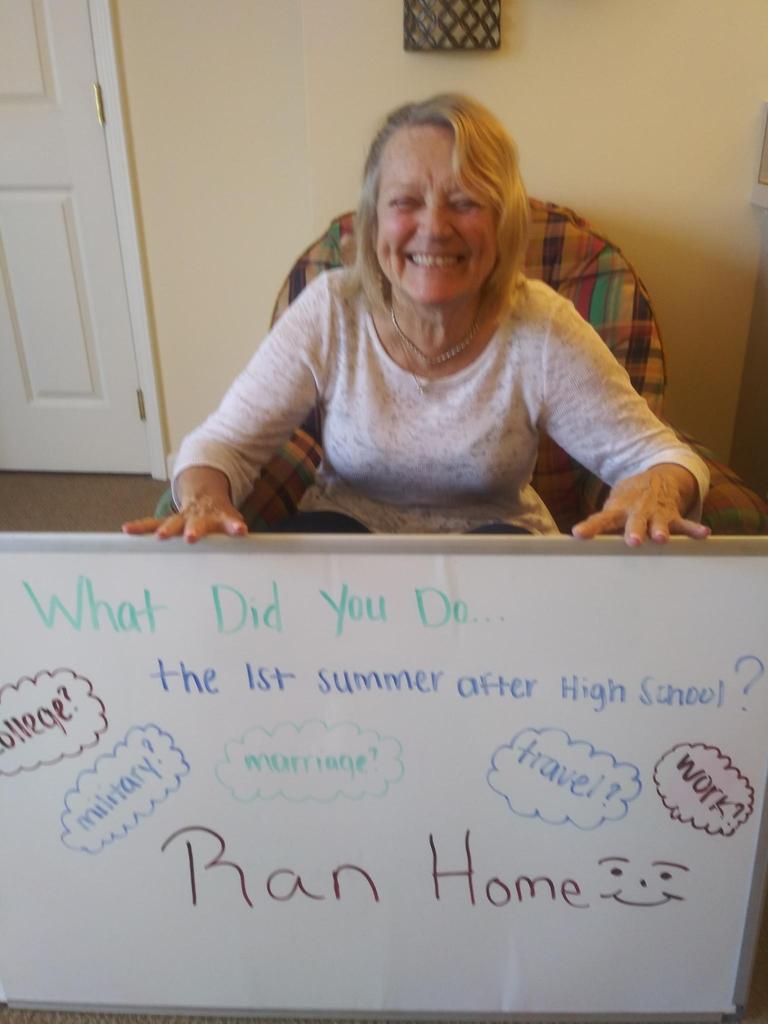 What Did You Do...
the 1st summer after High School?
college?
military?
marriage?
travel?
work?
Ran Home